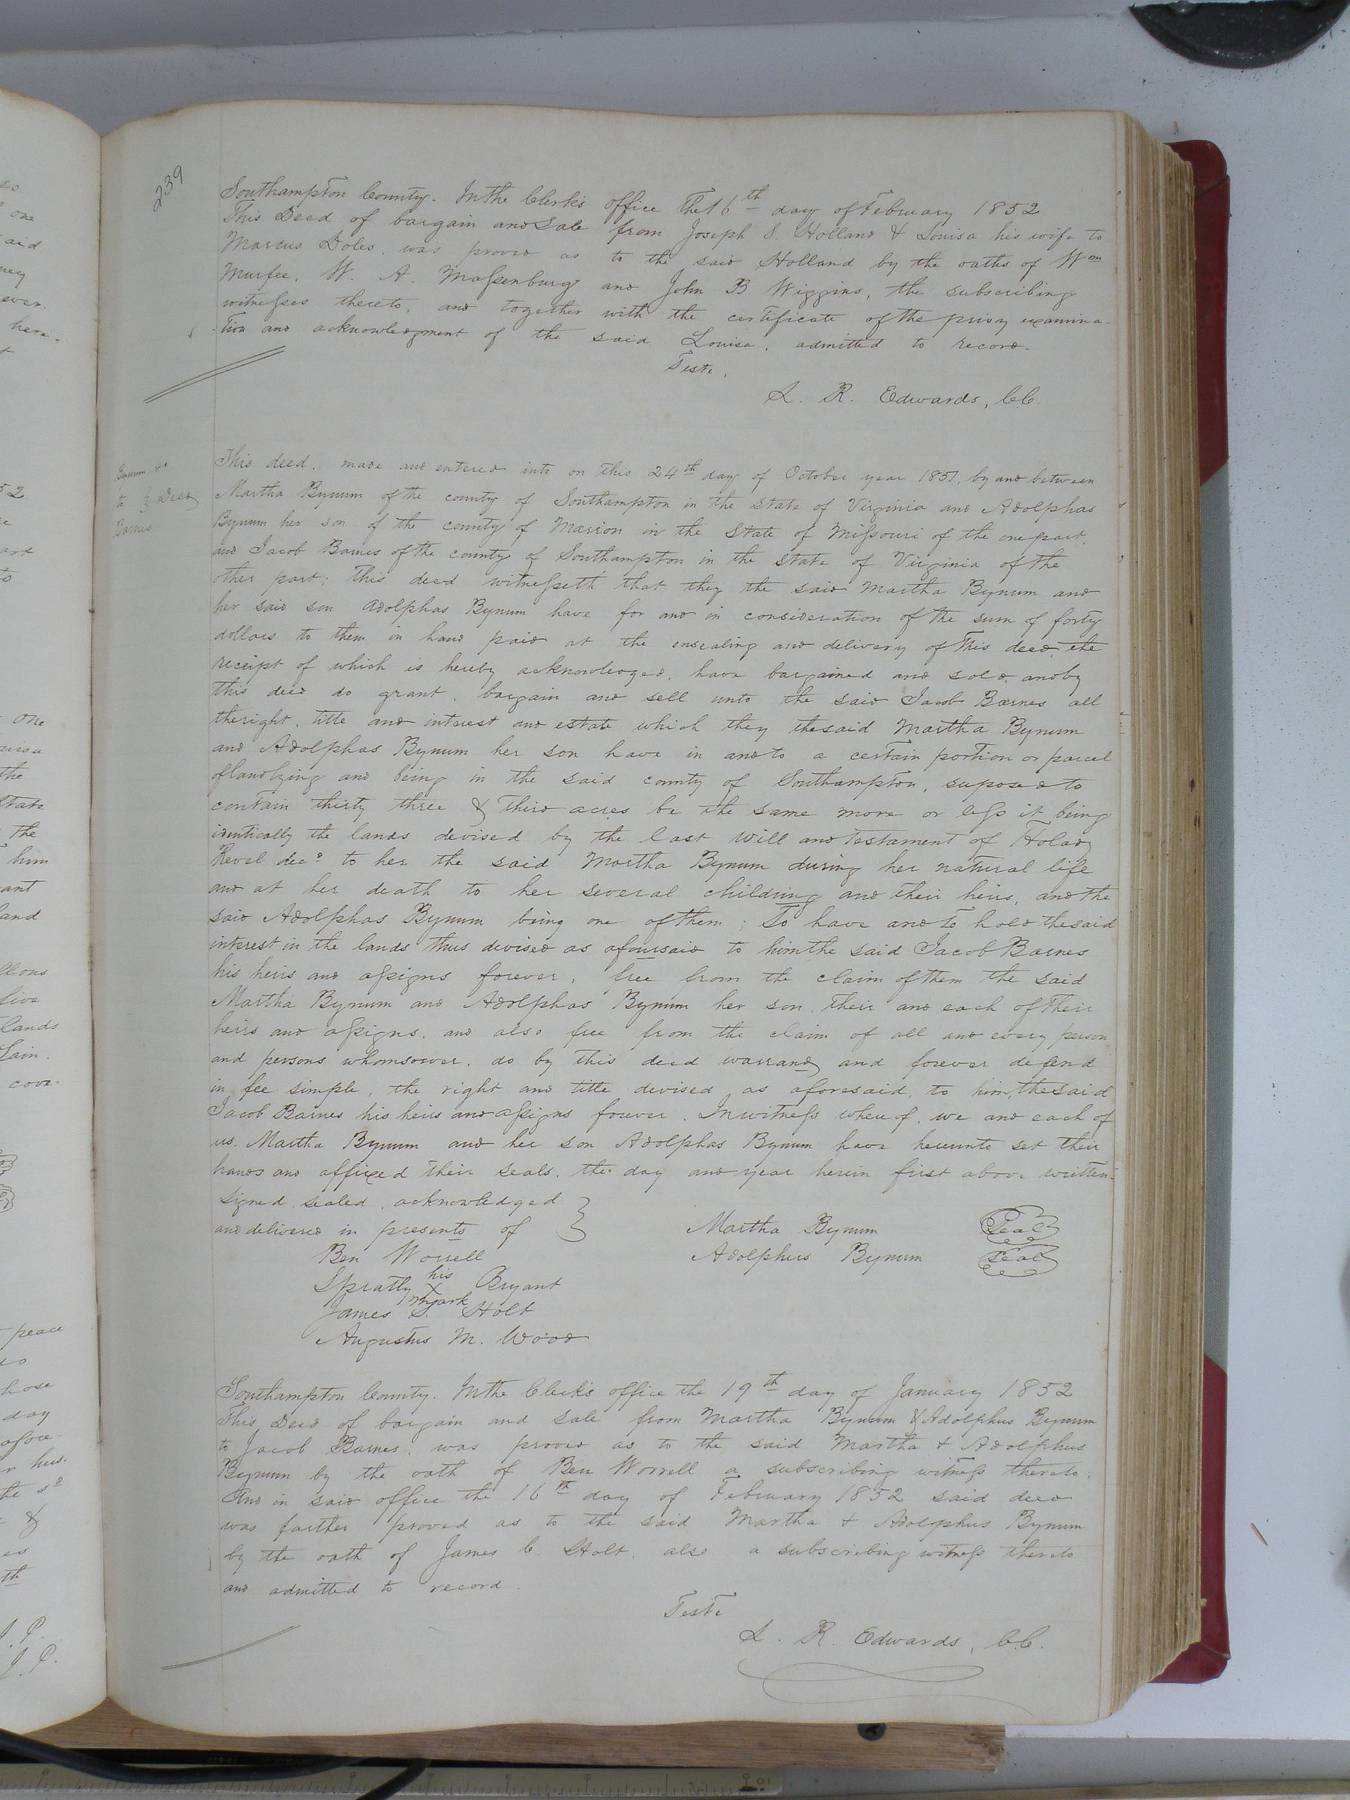 239
Southampton County. In the Clerk's office The 16th day of February 1852
This Deed of bargain and Sale from Joseph S Holland & Louisa his wife to
Marcus Doles, was proved as to the said Holland by the oaths of Wm
Murfee, W. A. Massenburg and John B Wiggins, the subscribing
witnesses thereto, and together with the certificate of the privy examina-
tion and acknowledgment of the said Louisa, admitted to record.
Teste,
L. R. Edwards, C.C.
Bynum &c
to } Deed
Barnes
This deed, made and entered into on this 24th day of October year 1851, by and between
Martha Bynum of the county of Southampton in the State of Virginia and Adolphas
Bynum her son of the county of Marion in the State of Missouri of the one part,
and Jacob Barnes of the county of Southampton in the State of Virginia of the
other part; This deed witnesseth that they the said Martha Bynum and
her said son Adolphas Bynum have for and in consideration of the sum of forty
dollars to them in hand paid at the ensealing and delivery of This deed the
receipt of which is hereby acknowledged, have bargained and sold, and by
this deed do grant, bargain and sell unto the said Jacob Barnes all
the right, title and interest and estate which they the said Martha Bynum
and Adolphas Bynum her son have in and to a certain portion or parcel
of land lying and being in the said county of Southampton, suposed to
contain thirty three & third acres be the same more or less it being
identically the lands devised by the last Will and Testament of Holady
Revel decd to her the said Martha Bynum during her natural life
and at her death to her several childring and their heirs, and the
said Adolphas Bynum being one of them; To have and to hold the said
interest in the lands thus devised as afoursaid to him the said Jacob Barnes
his heirs and assigns forever, free from the claim of them the said
Martha Bynum and Adolphas Bynum her son, their and each of their
heirs and assigns, and also free from the claim of all and every person
and persons whomsoever, do by this deed warrand and forever defend
in fee simple, the right and title devised as aforesaid, to him, the said
Jacob Barnes his heirs and assigns forever. In witness whereof, we and each of
us, Martha Bynum and her son Adolphas Bynum have hereunto set their
hands and affixed their seals, the day and year herein first above written.
Signed, sealed, acknowledged }
and delivered in presents of
Martha Bynum Seal
Adolphus Bynum Seal
Ben Worrell
Spratly his X mark Bryant
James S. Holt
Augustus M. Wood
Southampton County. In the Clerk's office the 19th day of January 1852
This Deed of bargain and sale from Martha Bynum & Adolphus Bynum
to Jacob Barnes, was proved as to the said Martha & Adolphus
Bynum by the oath of Ben Worrell a subscribing witness thereto.
And in said office the 16th day of February 1852 said deed
was farther proved as to the said Martha & Adolphus Bynum
by the oath of James C Holt, also a subscribing witness thereto
and admitted to record.
Teste
L. R. Edwards, C.C.